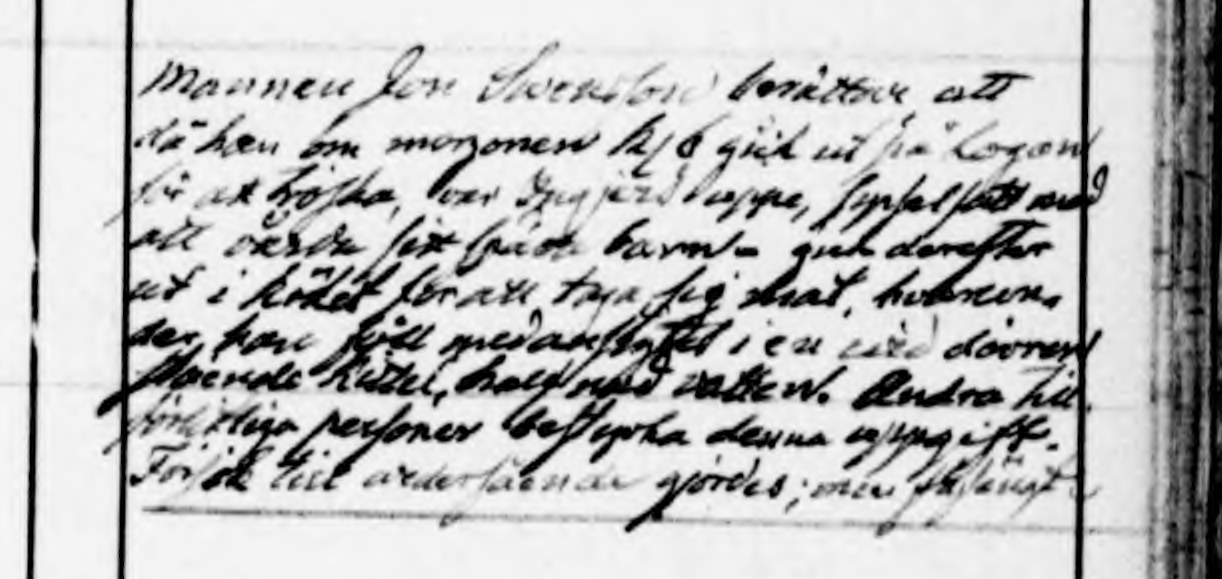 Mannen Jon Swensson berättar, att
då han om morgonen kl 6 gick ut på Logan
för att tröska, var Ingjerd uppe, sysselsatt med
att vårda sitt späda barn – gick derefter
ut i köket för att taga sig mat, hvarun-
der hon föll med ansigtet i en vid dörren
stående kittel, half med vatten. Andra till-
förlitliga personer bestyrka denna uppgift.
Försök till återfående gjordes; men fåfängt